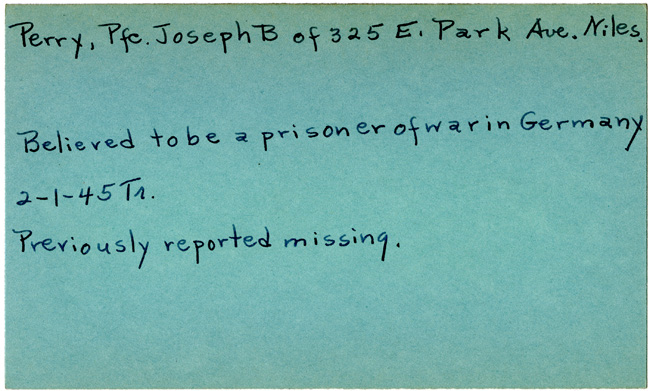 Perry, Pfc. Joseph B of 325 E. Park Ave. Niles.
Believed to be a prisoner of war in Germany
2-1-45 Tr.
Previously reported missing.